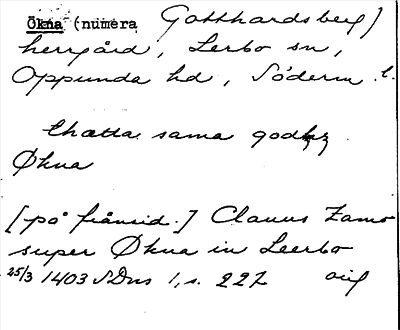 Ökna (numera Gotthardsberg)
herrgård, Lerbo sn,
Oppunda hd, Söderm. l.
thætta sama godz
Økna
[på frånsid.] Clauus Zamo
super Økna in Leerbo
25/3 1403 SDns 1, s. 227 orig